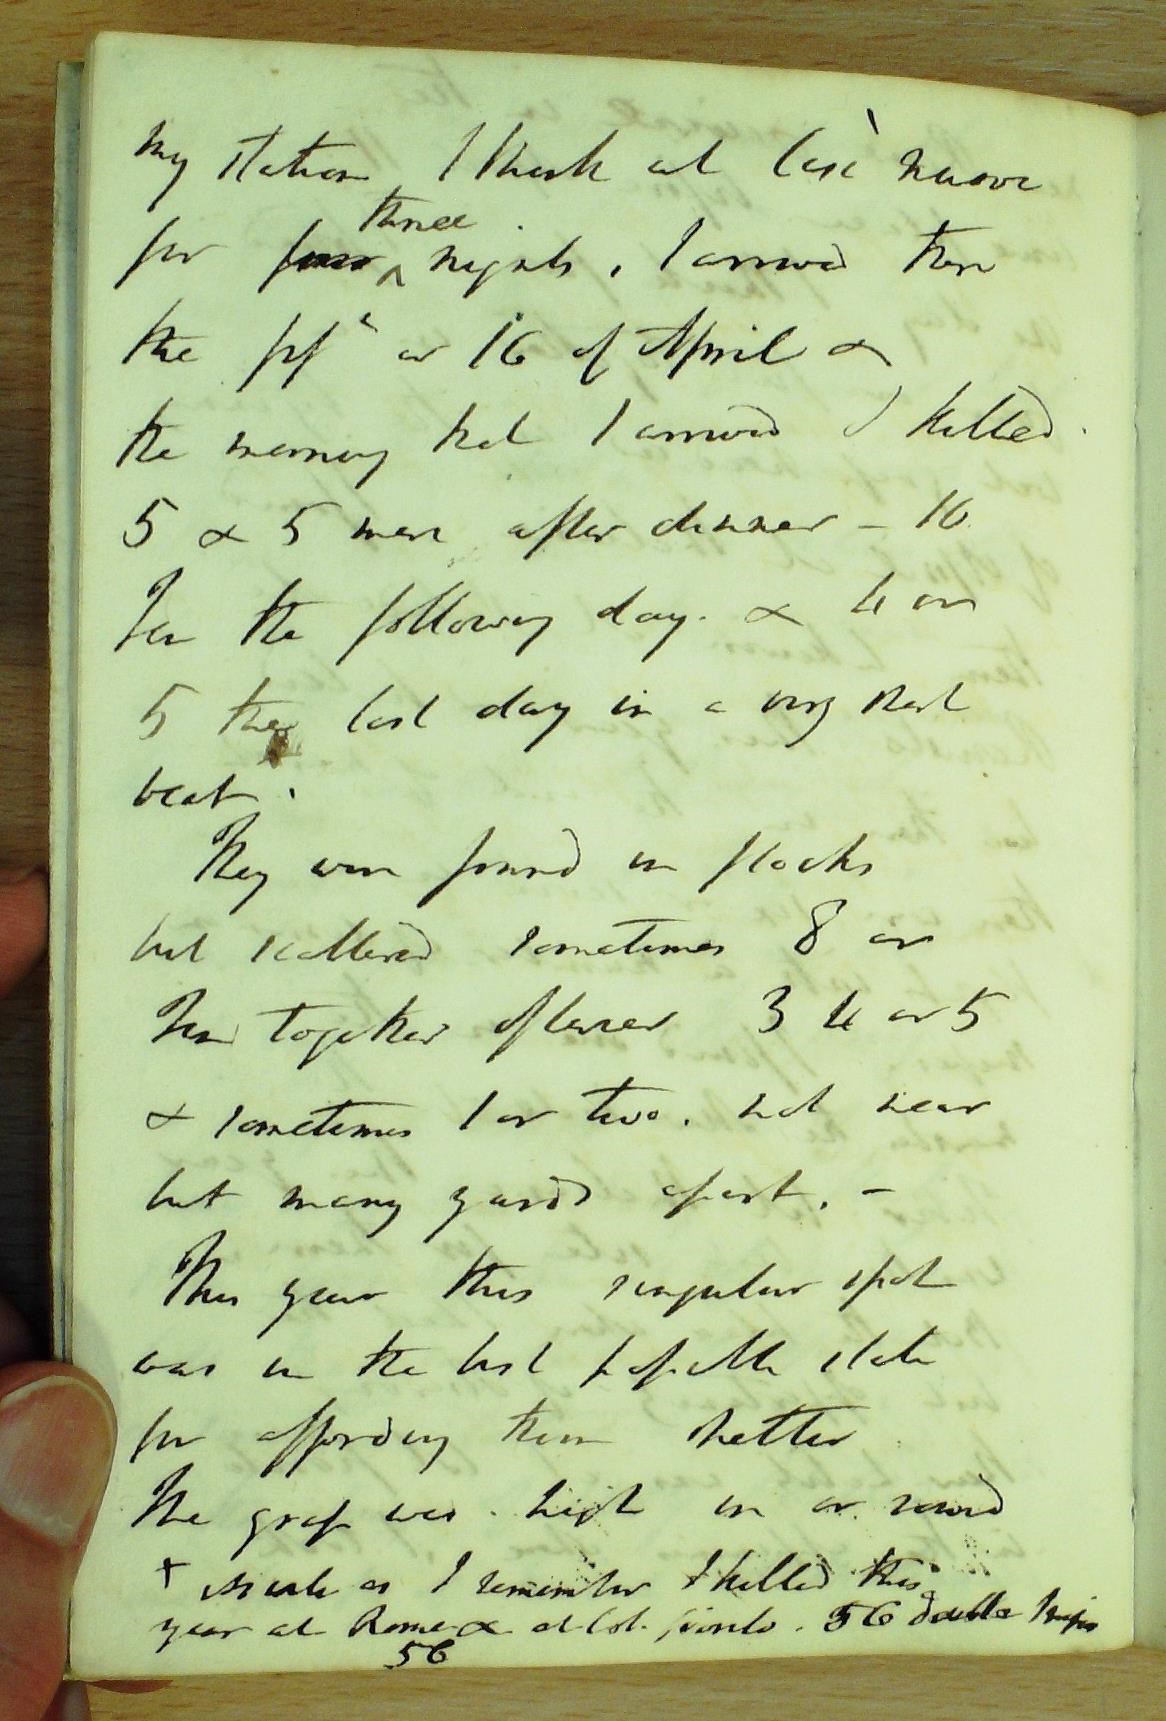 my station I think at Casè nuove
for four three nights, I arrived there
the 15th or 16 of April &
the morning that I arrived I killed
5 & 5 more after dinner - 16
for the following day. & 4 or
5 the last day in a very short
beat.
They were found in flocks
but scattered sometimes 8 or
ten together oftener 3 4 or 5
& sometimes 1 or two. not near
but many yards apart. -
This year this singular spot
was in the best possible state
for affording them shelter
The grass was high in or round
+ as I remember I killed this
year at Rome & at 56 double snipes
56